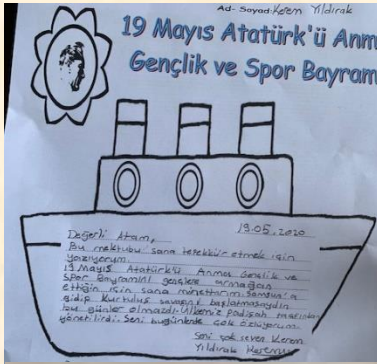 Ad-Soyad: Kerem Yıldırak
19 Mayıs Atatürk'ü Anm
Gençlik ve Spor Bayram
19.05.2020
Değerli Atam,
Bu mektubu sana teşekkür etmek için
yazıyorum.
19 Mayıs Atatürk'ü Anma Gençlik ve
Spor Bayramını gençlere armağan
ettiğin için sana minettarım. Samsun'a
gidip Kurtuluş savaşını başlatmasaydın
bu günler olmazdı. Ülkemiz Padişah
yönetilirdi. Seni bugünlerde çok özlüyorum.
Seni çok seven Kerem
Yıldırak